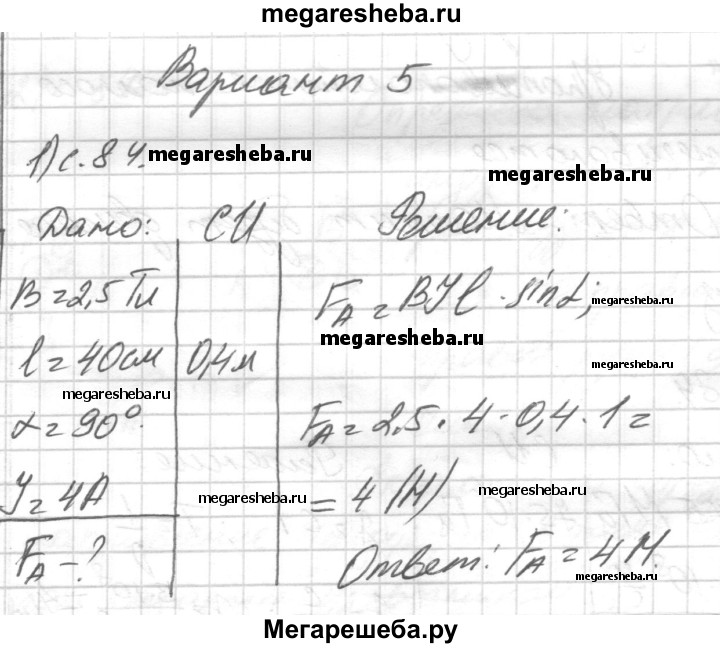 megaresheba.ru
Вариант 5
1) с. 84. megaresheba.ru
megaresheba.ru
Дано: СИ Решение:
B = 2,5 Тл
F_A = BIl · sinα; megaresheba.ru
megaresheba.ru
l = 40 см 0,4 м
megaresheba.ru
megaresheba.ru
α = 90°.
F_A = 2,5 · 4 · 0,4 · 1 =
I = 4А
megaresheba.ru
= 4 (Н)
megaresheba.ru
F_A - ?
Ответ: F_A = 4 Н.
megaresheba.ru
Мегарешеба.ру